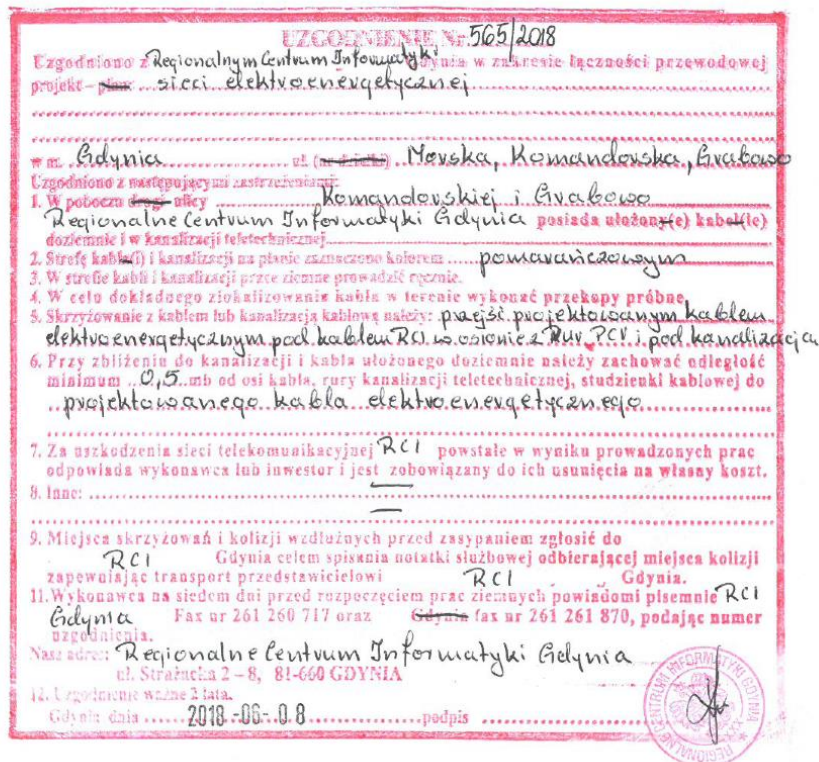 UZGODNIENIE Nr 565/2018
Uzgodniono z Regionalnym Centrum Informatyki Gdynia w zakresie łączności przewodowej
projekt – plan: sieci elektroenergetycznej
w m. Gdynia ul. (nr działki) Morska, Komandorska, Grabowo
Uzgodniono z następującymi zastrzeżeniami:
1. W poboczu drogi ulicy Komandorskiej i Grabowo
Regionalne Centrum Informatyki Gdynia posiada ułożony(e) kabel(le)
doziemne i w kanalizacji teletechnicznej
2. Strefę kabla(i) i kanalizacji na planie zaznaczono kolorem pomarańczowym
3. W strefie kabli i kanalizacji prace ziemne prowadzić ręcznie.
4. W celu dokładnego zlokalizowania kabla w terenie wykonać przekopy próbne.
5. Skrzyżowanie z kablem lub kanalizacją kablową należy: przejść projektowanym kablem
elektroenergetycznym pod kablem RCI w osłonie z Rur PCV i pod kanalizacją
6. Przy zbliżeniu do kanalizacji i kabla ułożonego doziemnie należy zachować odległość
minimum 0,5 mb od osi kabla, rury kanalizacji teletechnicznej, studzienki kablowej do
projektowanego kabla elektroenergetycznego
7. Za uszkodzenia sieci telekomunikacyjnej RCI powstałe w wyniku prowadzonych prac
odpowiada wykonawca lub inwestor i jest zobowiązany do ich usunięcia na własny koszt.
8. Inne: —
—
9. Miejsca skrzyżowań i kolizji wzdłużnych przed zasypaniem zgłosić do
RCI Gdynia celem spisania notatki służbowej odbierającej miejsca kolizji
zapewniając transport przedstawicielowi RCI Gdynia.
11. Wykonawca na siedem dni przed rozpoczęciem prac ziemnych powiadomi pisemnie RCI
Gdynia Fax nr 261 260 717 oraz Gdynia fax nr 261 261 870, podając numer
uzgodnienia.
Nasz adres: Regionalne Centrum Informatyki Gdynia
ul. Strażacka 2 – 8, 81-660 GDYNIA
12. Uzgodnienie ważne 2 lata.
Gdynia dnia 2018 -06- 08 podpis
REGIONALNE CENTRUM INFORMATYKI GDYNIA